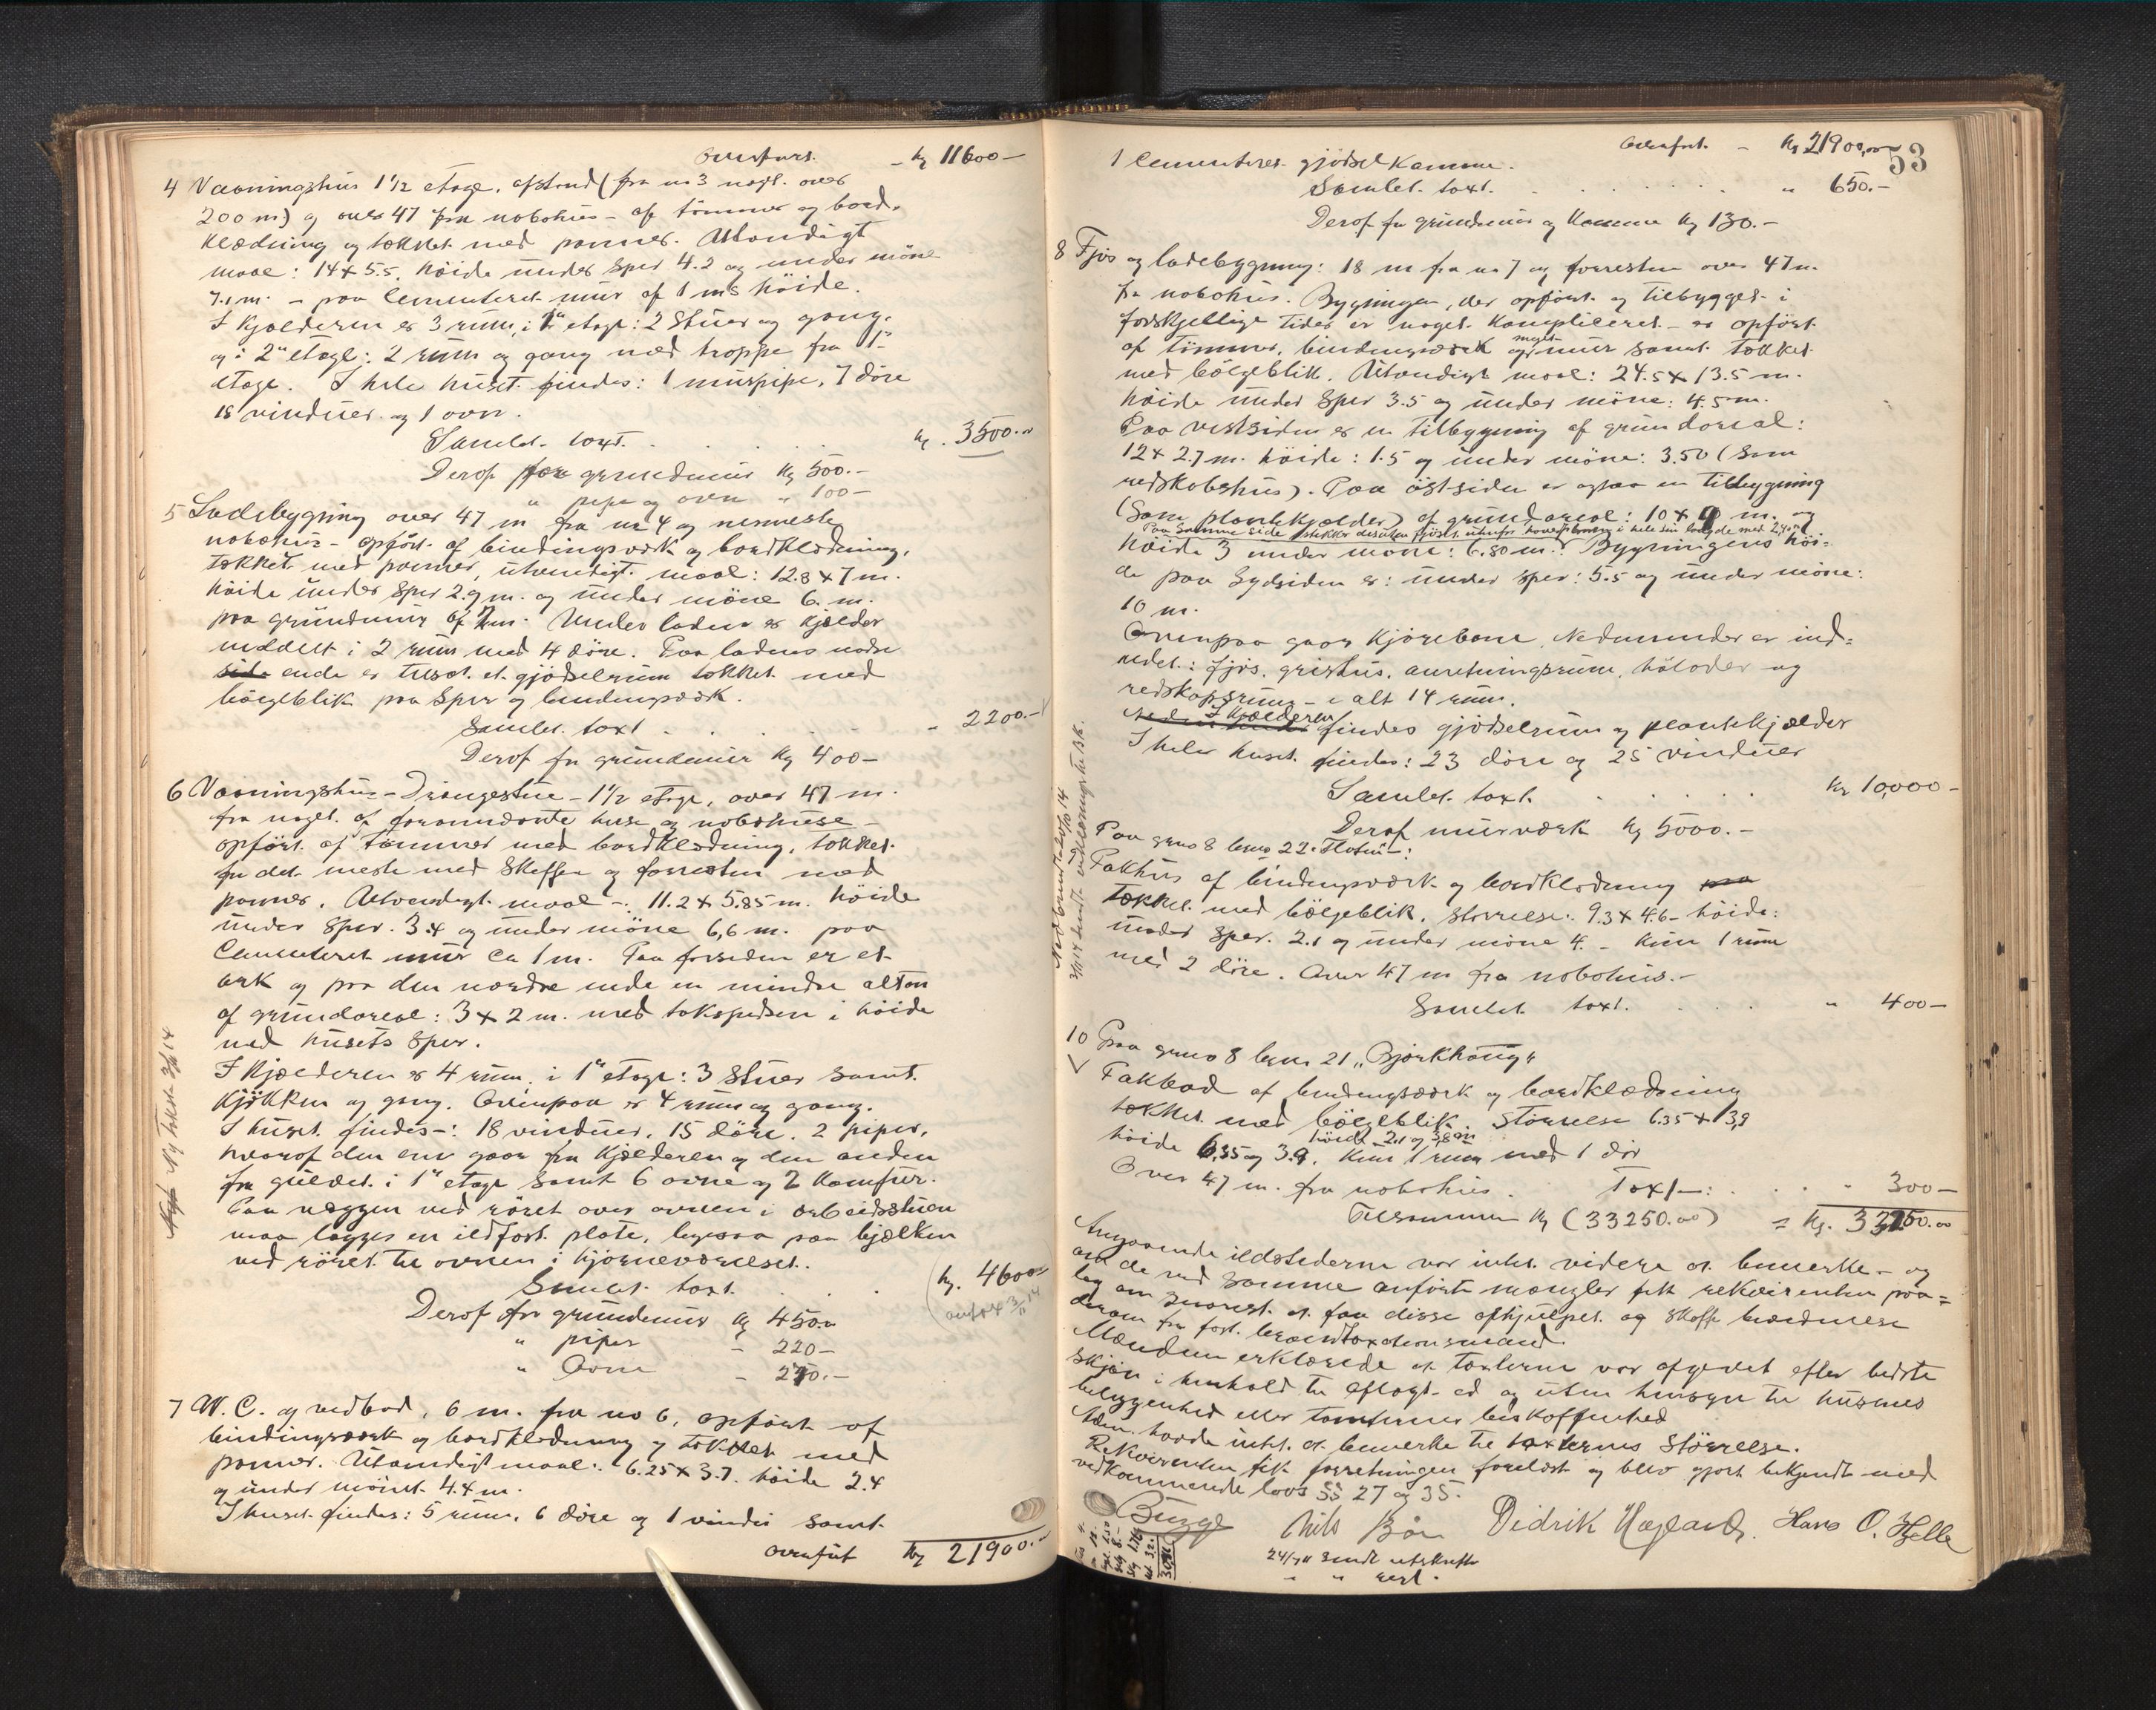 Overført. - Kr 11600 -
4 Vaaningshus 1 1/2 etage, afstand (fra no 3 nogl. over
200 m) og over 47 fra nabohus - af tømmer og bord-
klædning og tækket med panner. Utvendigt
maal: 14 x 5.5. høide under sper 4.2 og under møne
7.1 m. - paa cementeret mur af 1 ms høide.
I kjælderen er 3 rum, i 1ste etage: 2 stuer og gang,
og i 2den etage: 2 rum og gang med trappe fra 1ste
etage. I hele huset findes: 1 murpipe, 7 døre
18 vinduer og 1 ovn.
Samlet taxt. . . . kr. 3500.00
Deraf for grundmur kr 500.-
" pipe og ovn " 100 -
5 Ladebygning over 47 m fra no 4 og nærmeste
nabohus - opført af bindingsværk og bordklædning,
tækket med panner, utvendigt maal: 12.8 x 7 m.
høide under sper 2.9 m. og under møne 6. m.
paa grundmur af 2 m. Under laden er kjælder
inddelt i 2 rum med 4 døre. Paa ladens nordre
side ende er tilsat et gjødselrum tækket med
bølgeblik paa sper og bindingsværk.
Samlet taxt . . . - 2200.-
Deraf for grundmur kr 400 -
6 Vaaningshus - Drængestue - 1 1/2 etage, over 47 m.
fra noget af forannævnte huse og nabohuse -
opført af tømmer med bordklædning, tækket
for det meste med skeffer og forresten med
panner. Utvendigt maal -: 11.2 x 5.85 m. høide
under sper. 3.4 og under møne 6,6 m. paa
cementeret mur ca 1 m. Paa forsiden er et
ark og paa den nordre ende en mindre altan
af grundareal: 3 x 2 m. med takspidsen i høide
med husets sper.
I kjælderen er 4 rum, i 1ste etage: 3 stuer samt
kjøkken og gang. Ovenpaa er 4 rum og gang.
I huset findes -: 18 vinduer, 15 døre, 2 piper,
hvoraf den ene gaar fra kjælderen og den anden
fra gulvet i 1ste etage samt 6 ovne og 2 komfur.
Paa væggen ved røret over ovnen i arbeidsstuen
maa lægges en ildfast plate, ligesaa paa bjælken
ved røret til ovnen i hjørneværelset.
Samlet taxt. . . . kr. 4600.-
Deraf for grundmur kr 450.-
" piper - 220 -
" Ovne - 270.-
Ny takst 3/11 14
7 W. C. og vedbod, 6 m. fra no 6, opført af
bindingsværk og bordklædning og tækket med
panner. Utvendigt maal: 6.25 x 3.7. høide 2.4
og under mønet 4.4 m.
I huset findes: 5 rum, 6 døre og 1 vindu samt
overført Kr 21900.-
53
Overført. - Kr 21900,00
1 cementeret gjødselkamme.
Samlet taxt. . . . " 650.-
Deraf for grundmur og kamme kr 130.-
8 Fjøs og ladebygning: 18 m fra no 7 og forresten over 47 m.
fra nabohus. Bygningen, der opført og tilbygget i
forskjellige tider er noget kompliceret - er opført
af tømmer, bindingsværk og meget mur samt tækket
med bølgeblik. Utvendigt maal: 24.5 x 13.5 m.
høide under sper 3.5 og under møne: 4.5 m.
Paa vestsiden er en tilbygning af grundareal:
12 x 2.7 m. høide: 1.5 og under møne: 3.50 (som
redskabshus). Paa østsiden er ogsaa en tilbygning
(som plantekjælder) af grundareal: 10 x 9 m. og
Paa samme side stikker desuden fjøset utenfor i hele sin længde med 2.40 m
høide 3 under møne: 6.80 m. Bygningens høi-
de paa sydsiden er: under sper: 5.5 og under møne:
10 m.
Ovenpaa gaar kjørebane. Nedenunder er ind-
redet: fjøs, grishus, anretningsrum, høloder og
redskapsrum - i alt 14 rum.
I kjælderen findes gjødselrum og plantekjælder
I hele huset findes: 23 døre og 25 vinduer
Samlet taxt. . . . kr 10,000 -
Deraf murværk kr 5000.-
Paa grno 8 brno 22 "Flaten" -:
Takhus af bindingsværk og bordklædning paa
tækket med bølgeblik. størrelse: 9.3 x 4.6 - høide:
under sper. 2.1 og under møne 4. - kun 1 rum
med 2 døre. Over 47 m fra nabohus. -
Samlet taxt. . . . " 400 -
10 Paa grno 8 brno 21 "Bjørkhaug"
Takbod af bindingsværk og bordklædning
tækket med bølgeblik. Størrelse 6.35 x 3,9
høide 2.1 og 3,8 m
høide 6.35 og 3.9. Kun 1 rum med 1 dør
Over 47 m. fra nabohus. Taxt -: . . . " 300 -
Tilsammen kr (33250.00) = kr. 33250.00
Angaaende ildstederne var intet videre at bemerke - og
om de ved samme anførte mangler fik rekvirenten paa-
læg om snarest at faa disse afhjulpet og skaffe bevidnelse
derom fra fast branntaxationsmand.
Mændene erklærede at taxterne var afgivet efter bedste
skjøn i henhold til aflagt ed og uten hensyn til husenes
beliggenhed eller tomternes beskaffenhed
Man havde intet at bemerke til taxternes størrelse.
Rekvirenten fik forretningen forelæst og blev gjort bekjendt med
vedkommende lovs §§ 27 og 35.
Bugge Nils Bøn Didrik Hagland, Hans O. Hjelle
24/7 11 sendt utskrift
" " "